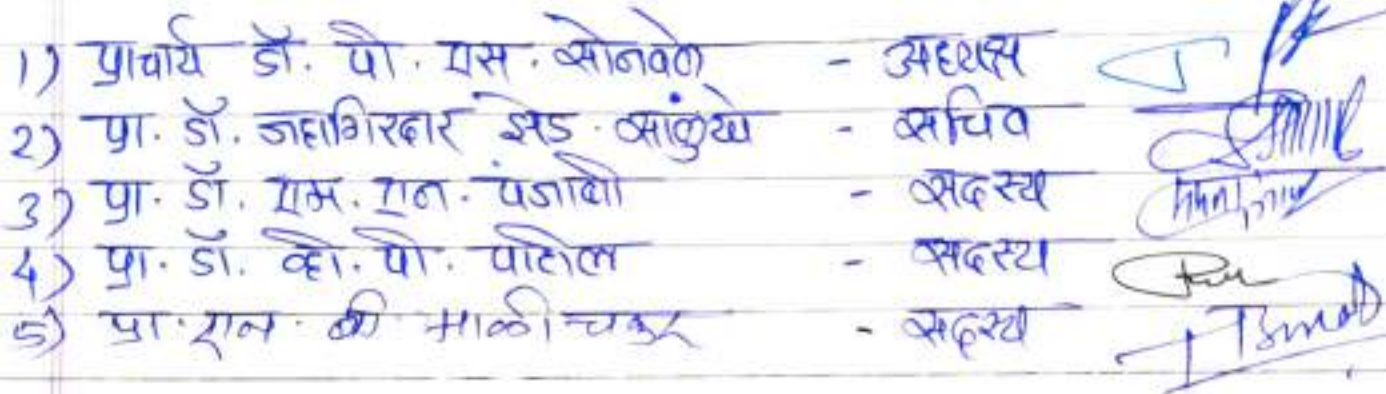 1) प्राचार्य डॉ. पी. एस. सोनवणे - अध्यक्ष
2) प्रा. डॉ. जहागिरदार झेड. - सचिव
3) प्रा. डॉ. एम. एन. पंजाबी - सदस्य
4) प्रा. डॉ. व्ही. पी. पाटील - सदस्य
5) प्रा. एन. बी. माळी - सदस्य